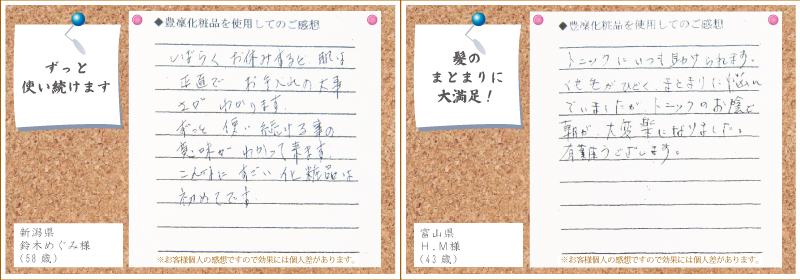 ずっと
使い続けます
◆豊凜化粧品を使用してのご感想
しばらく お休みすると、肌は
正直で お手入れの大事
さが わかります。
ずっと 使い 続ける事の
意味が わかって 来ます。
こんなに すごい 化粧品は
初めてです。
新潟県
鈴木めぐみ様
(58 歳)
※お客様個人の感想ですので効果には個人差があります。
髪の
まとまりに
大満足！
◆豊凜化粧品を使用してのご感想
トニックにいつも助けられます。
くせ毛がひどく、まとまりに悩ん
でいましたが、トニックのお陰で
朝が、大変楽になりました。
有難うございます。
富山県
H.M様
(43 歳)
※お客様個人の感想ですので効果には個人差があります。